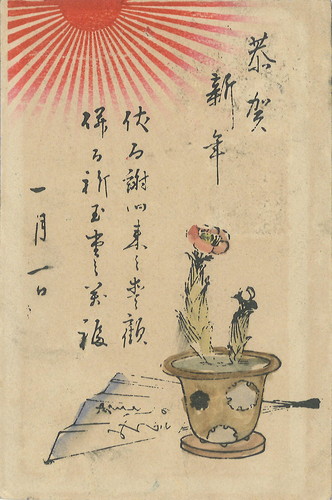 恭賀
新年
伏而謝旧来之愛顧
併而祈玉堂之萬福
一月一日